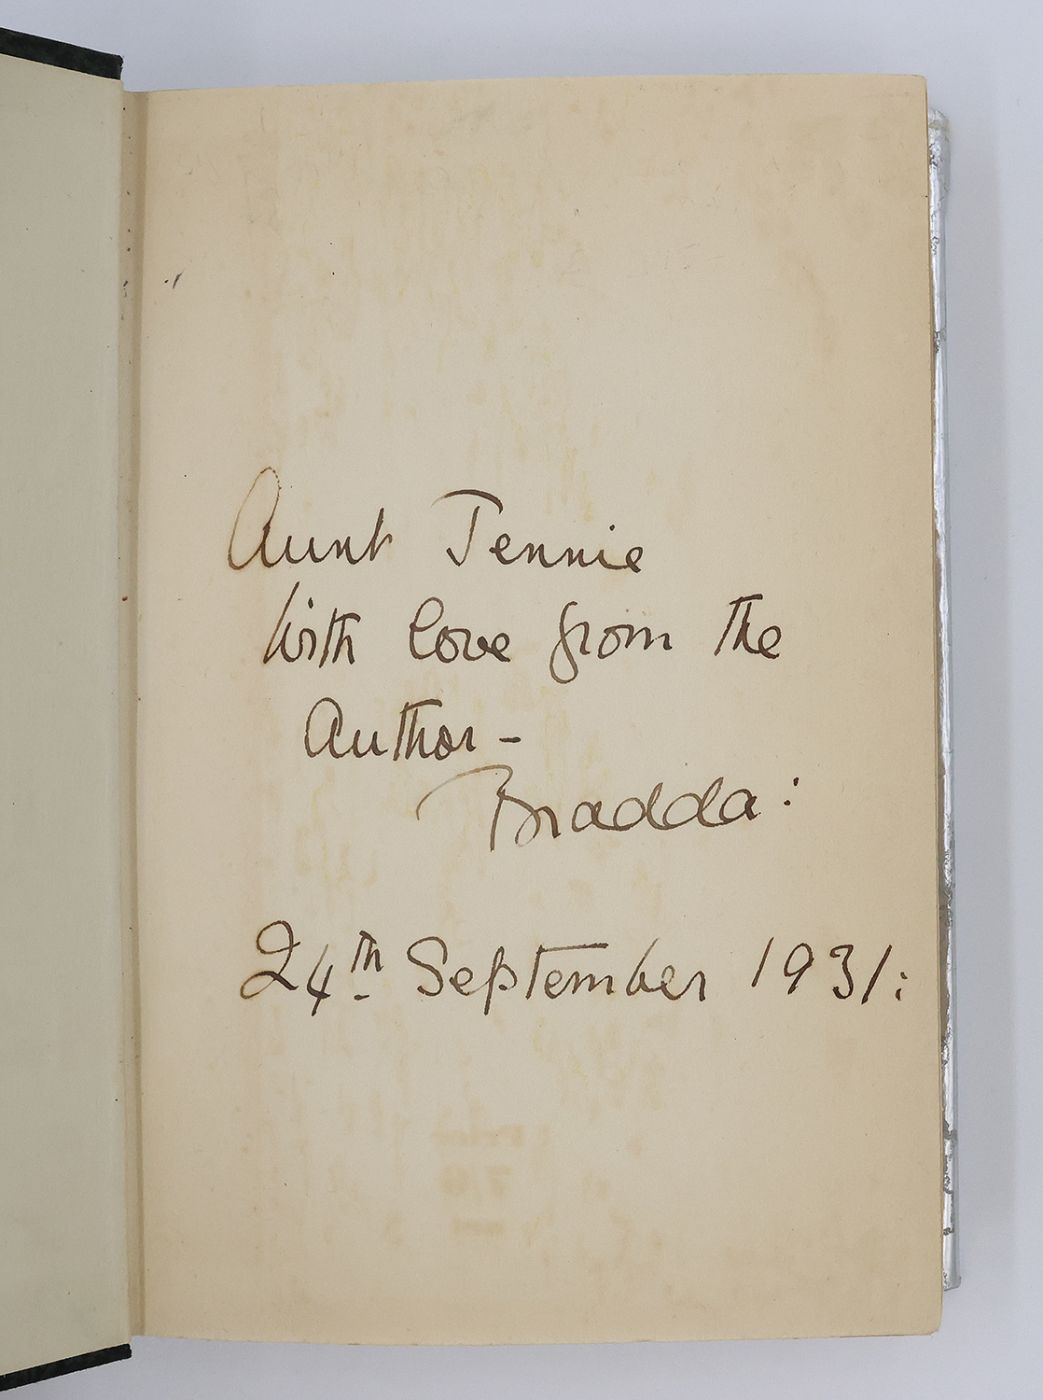 Aunt Jennie
With love from the
Author -
Bradda:
24th September 1931: